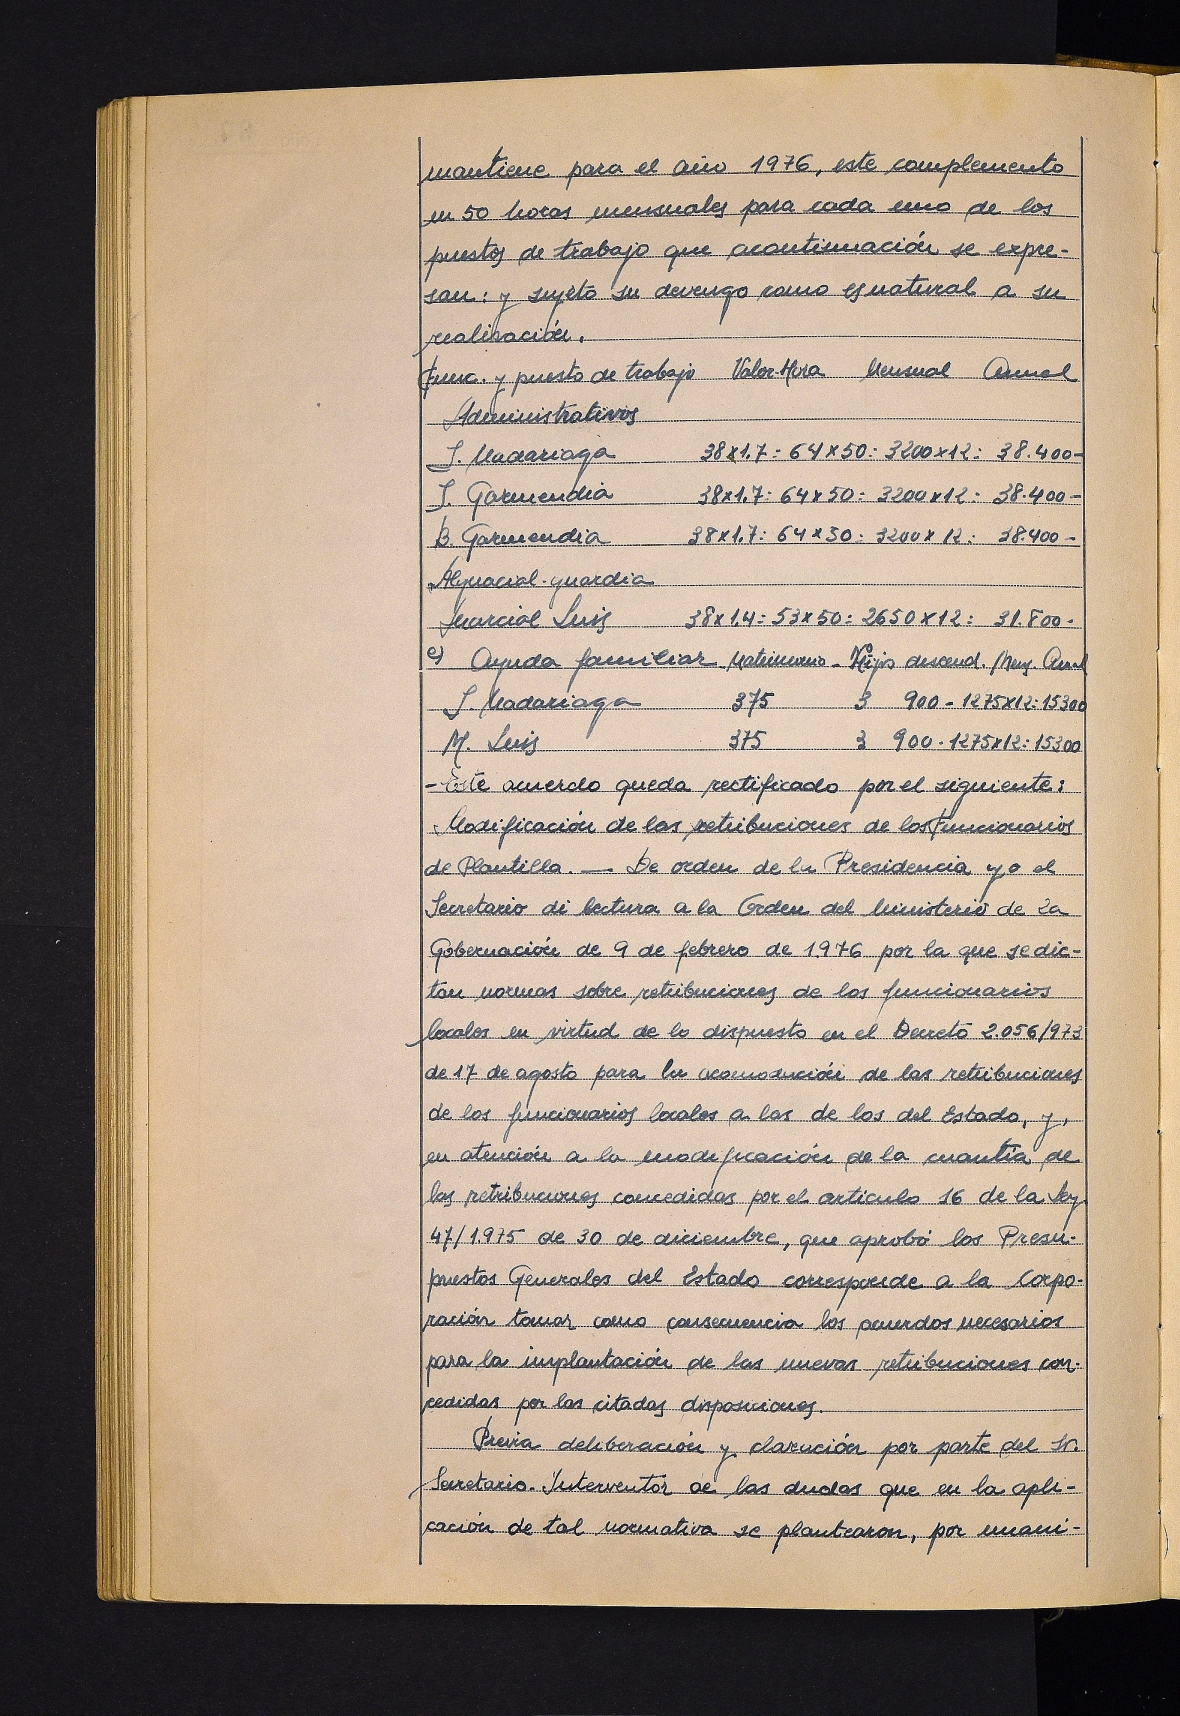 mantiene para el año 1976, este complemento
en 50 horas mensuales para cada uno de los
puestos de trabajo que acontinuación se expre-
san: y sujeto su devengo como es natural a su
realización.
Func. y puesto de trabajo Valor-Hora Mensual Anual
Administrativos
J. Madariaga 38x1.7: 64x50: 3200x12: 38.400-
J. Garmendia 38x1.7: 64x50: 3200x12: 38.400-
B. Garmendia 38x1.7: 64x50: 3200x12: 38.400-
Alguacial-guardia
Marcial Luis 38x1.4: 53x50: 2650x12: 31.800-
e) Ayuda familiar Matrimonio - Hijos descend. Mens. Anual
J. Madariaga 375 3 900 - 1275x12: 15300
M. Luis 375 3 900 - 1275x12: 15300
- Este acuerdo queda rectificado por el siguiente:
Modificación de las retribuciones de los Funcionarios
de Plantilla. — De orden de la Presidencia yo el
Secretario di lectura a la Orden del Ministerio de la
Gobernación de 9 de febrero de 1.976 por la que se dic-
tan normas sobre retribuciones de los funcionarios
locales en virtud de lo dispuesto en el Decreto 2.056/973
de 17 de agosto para la acomodación de las retribuciones
de los funcionarios locales a las de los del Estado, y,
en atención a la modificación de la cuantía de
las retribuciones concedidas por el articulo 16 de la Ley
47/1.975 de 30 de diciembre, que aprobó los Presu-
puestos Generales del Estado corresponde a la Corpo-
ración tomar como consecuencia los acuerdos necesarios
para la implantación de las nuevas retribuciones con-
cedidas por las citadas disposiciones.
Previa deliberación y claración por parte del Sr.
Secretario-Interventor de las dudas que en la apli-
cación de tal normativa se plantearon, por unani-